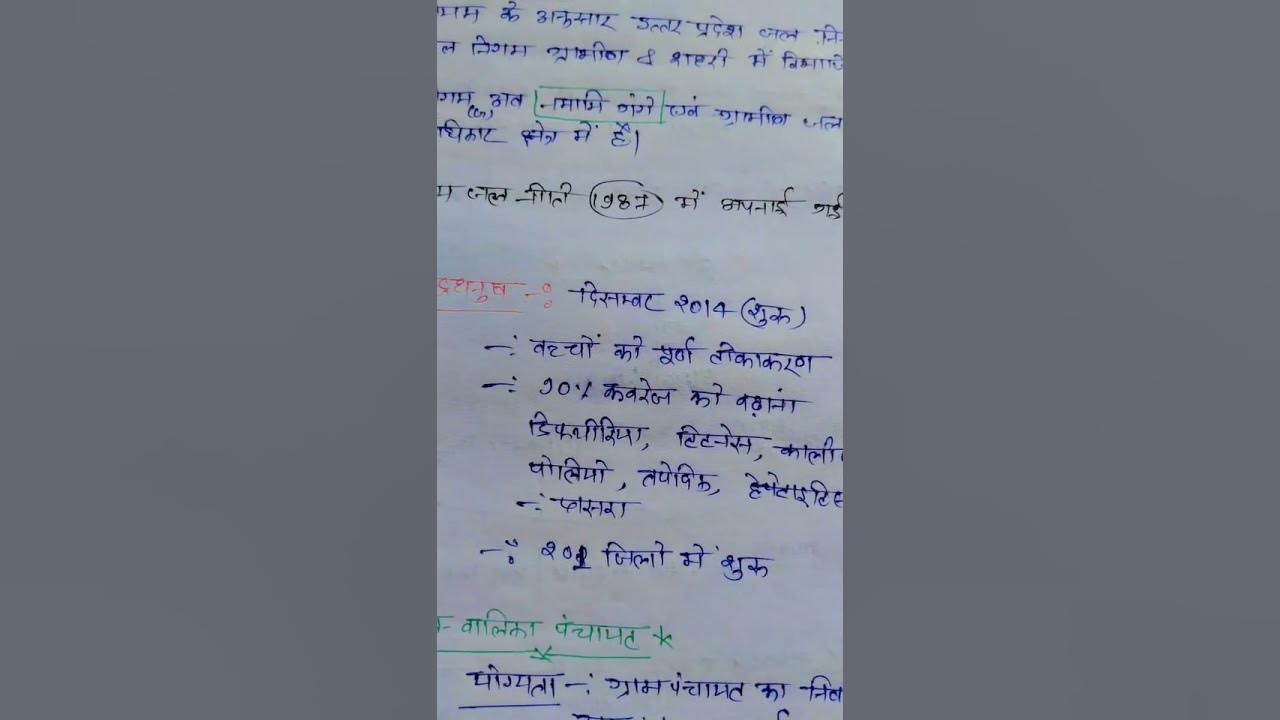 के अनुसार उत्तर प्रदेश जल नि
ल निगम ग्रामीण & शहरी में विभाजि
गम अब नमामि गंगे एवं ग्रामीण जल
धिकार क्षेत्र में है।
म जल नीति 1987 में अपनाई गई
द्रधनुष -: दिसम्बर 2014 (शुरू)
-: बच्चों को पूर्ण टीकाकरण
-: 90% कवरेज को बढ़ाना
डिफ्थीरिया, टिटनेस, काली
पोलियो, तपेदिक, हेपेटाइटिस
-: खसरा
-: 201 जिलों में शुरू
- बालिका पंचायत *
योग्यता -: ग्राम पंचायत का निव